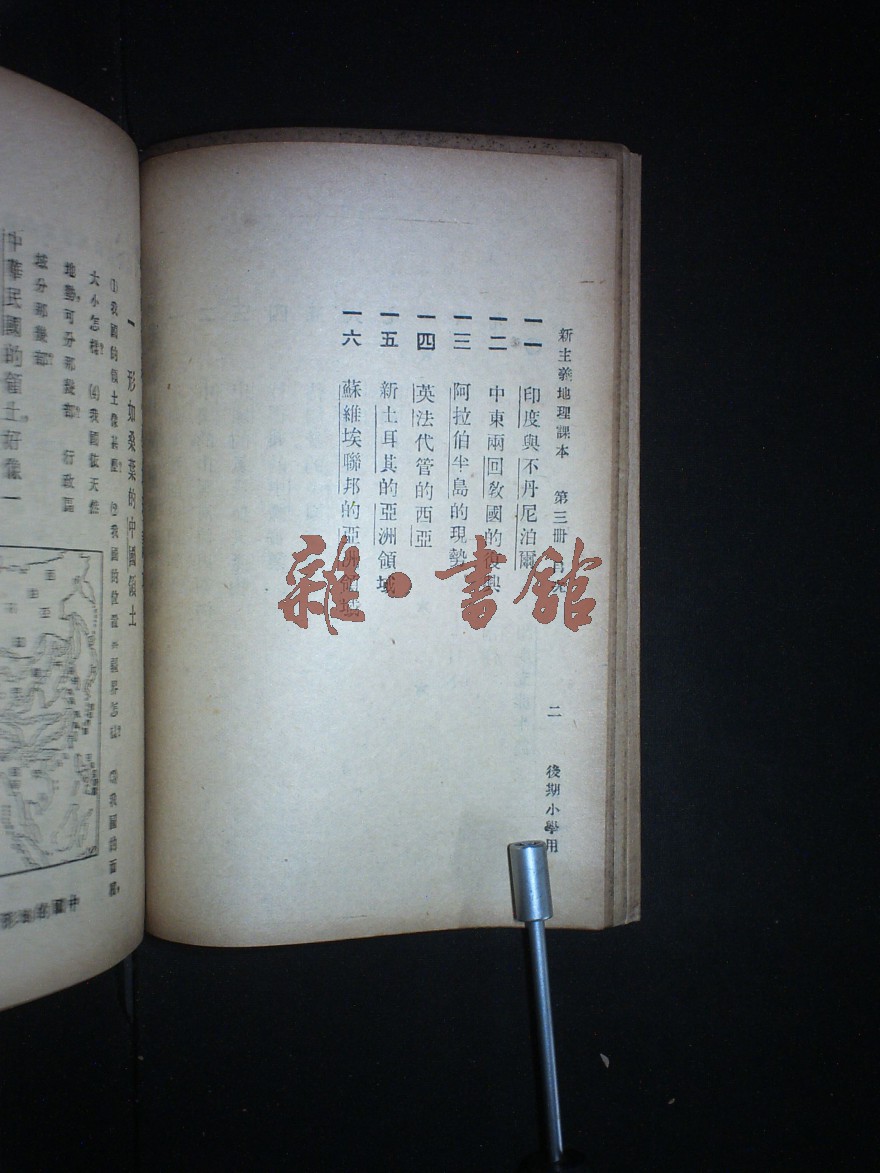 新主義地理課本　第三冊目次　二　後期小學用
一一　印度與不丹尼泊爾
一二　中東兩回教國的復興
一三　阿拉伯半島的現勢
一四　英法代管的西亞
一五　新土耳其的亞洲領域
一六　蘇維埃聯邦的亞洲領域
雜·書館
一　形如桑葉的中國領土
⑴我國的領土像甚麼?　⑵我國的位置和疆界怎樣?　⑶我國的面積,
大小怎樣?　⑷我國依天然
地勢,可分那幾部?　行政區
域分那幾部?
中華民國的領土,好像一